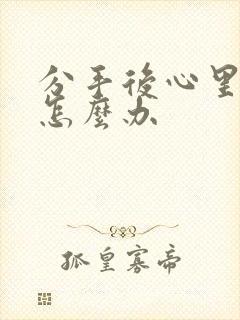 分手後心里
怎麼办
孤皇寡帝